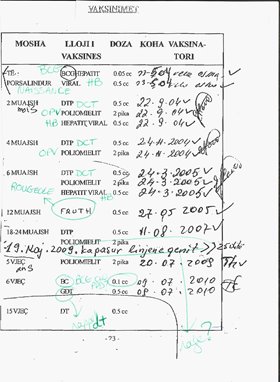 VAKSINIMET
MOSHA LLOJI I VAKSINES DOZA KOHA VAKSINATORI
BCG
TE PORSALINDUR BCG HEPATIT VIRAL 0.05 cc 0.5 cc
NAISSANCE HB
2 MUAJSH DTP DCT 0.5 cc 22.9.04
mois OPV POLIOMIELIT 2 pika 22.9.04
HB HEPATIT VIRAL 0.5 cc 22.9.04
4 MUAJSH DTP DCT 0.5 cc 24.11.2004
OPV POLIOMIELIT 2 pika 24.11.2004
6 MUAJSH DTP DCT 0.5 cc 24-3-2005
POLIOMIELIT 2 pika 24-3-2005
HEPATIT VIRAL 0.5 cc 24-3-2005
ROUGEOLE HB
12 MUAJSH FRUTH 0.5 cc 27.05 2005
18-24 MUAJSH DTP 0.5 cc 11.08.2007
POLIOMIELIT 2 pika
19. Maj. 2009.
5 VJEÇ POLIOMIELIT 2 pika 20.07.2009
ans
6 VJEÇ BC 0.1 cc 09.07.2010
GDT 0.5 cc 09.07.2010
15 VJEÇ DT 0.5 cc
dt
-73-